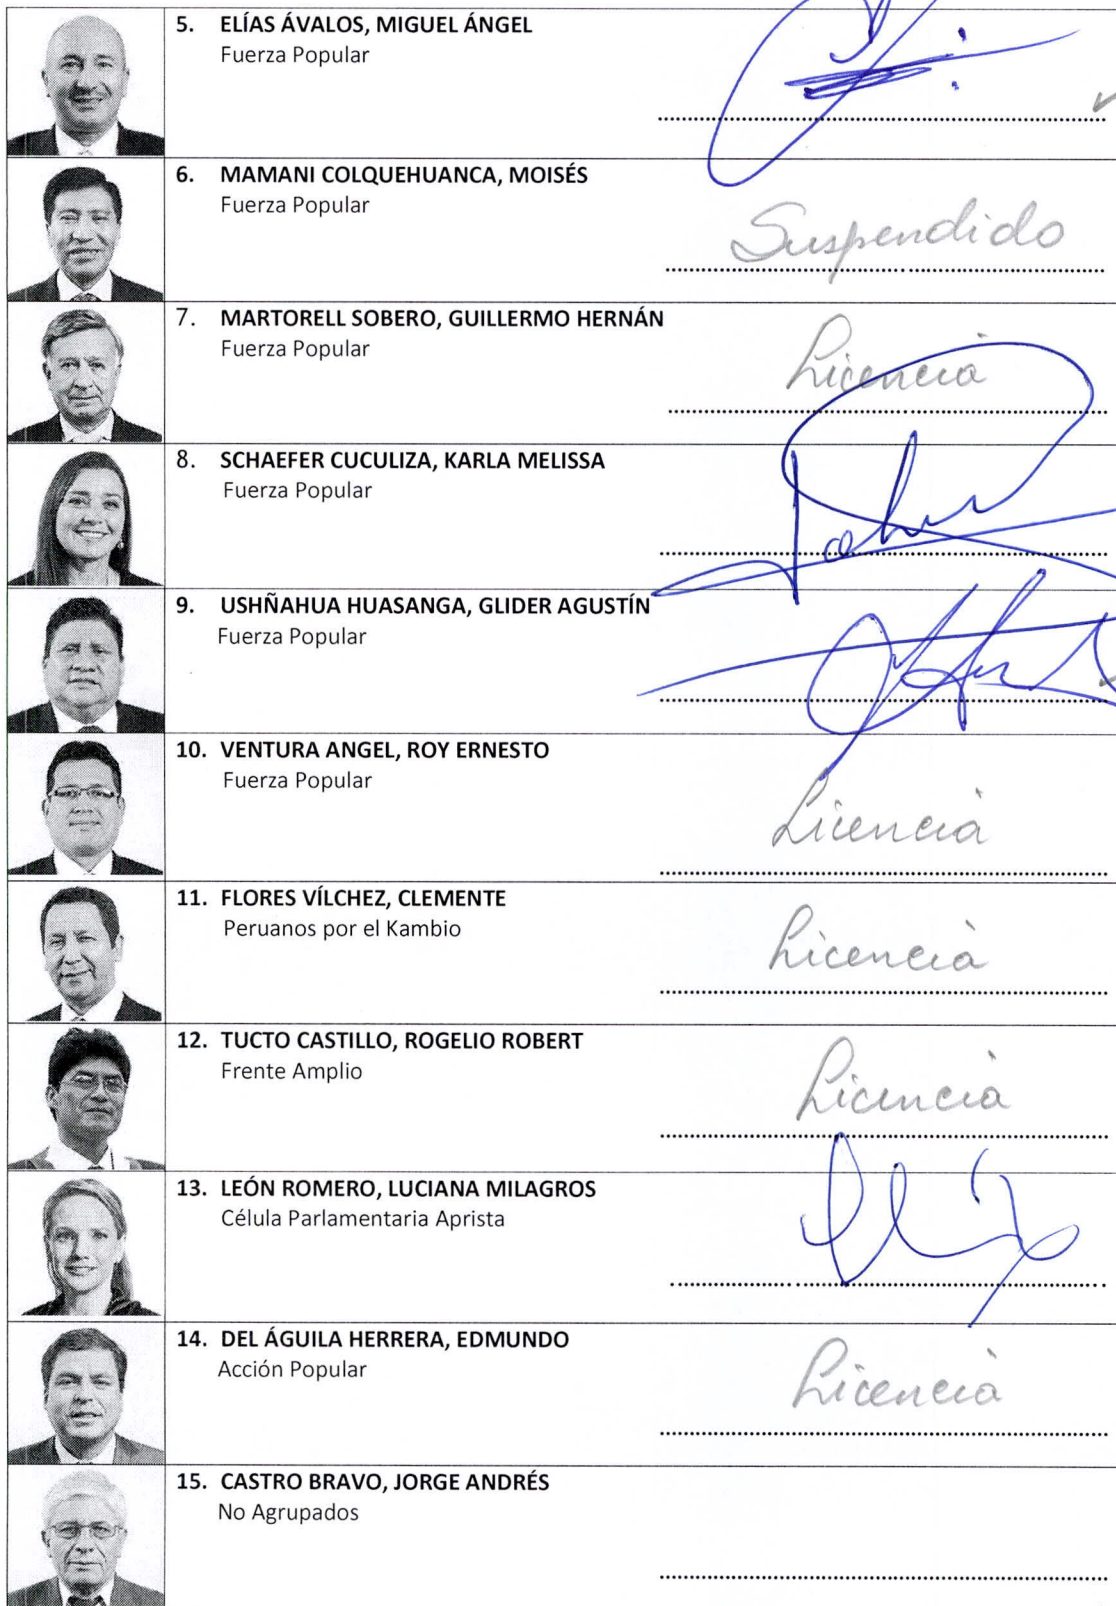 5. ELÍAS ÁVALOS, MIGUEL ÁNGEL
Fuerza Popular
6. MAMANI COLQUEHUANCA, MOISÉS
Fuerza Popular
Suspendido
7. MARTORELL SOBERO, GUILLERMO HERNÁN
Fuerza Popular
Licencia
8. SCHAEFER CUCULIZA, KARLA MELISSA
Fuerza Popular
9. USHÑAHUA HUASANGA, GLIDER AGUSTÍN
Fuerza Popular
10. VENTURA ANGEL, ROY ERNESTO
Fuerza Popular
Licencia
11. FLORES VÍLCHEZ, CLEMENTE
Peruanos por el Kambio
Licencia
12. TUCTO CASTILLO, ROGELIO ROBERT
Frente Amplio
Licencia
13. LEÓN ROMERO, LUCIANA MILAGROS
Célula Parlamentaria Aprista
14. DEL ÁGUILA HERRERA, EDMUNDO
Acción Popular
Licencia
15. CASTRO BRAVO, JORGE ANDRÉS
No Agrupados